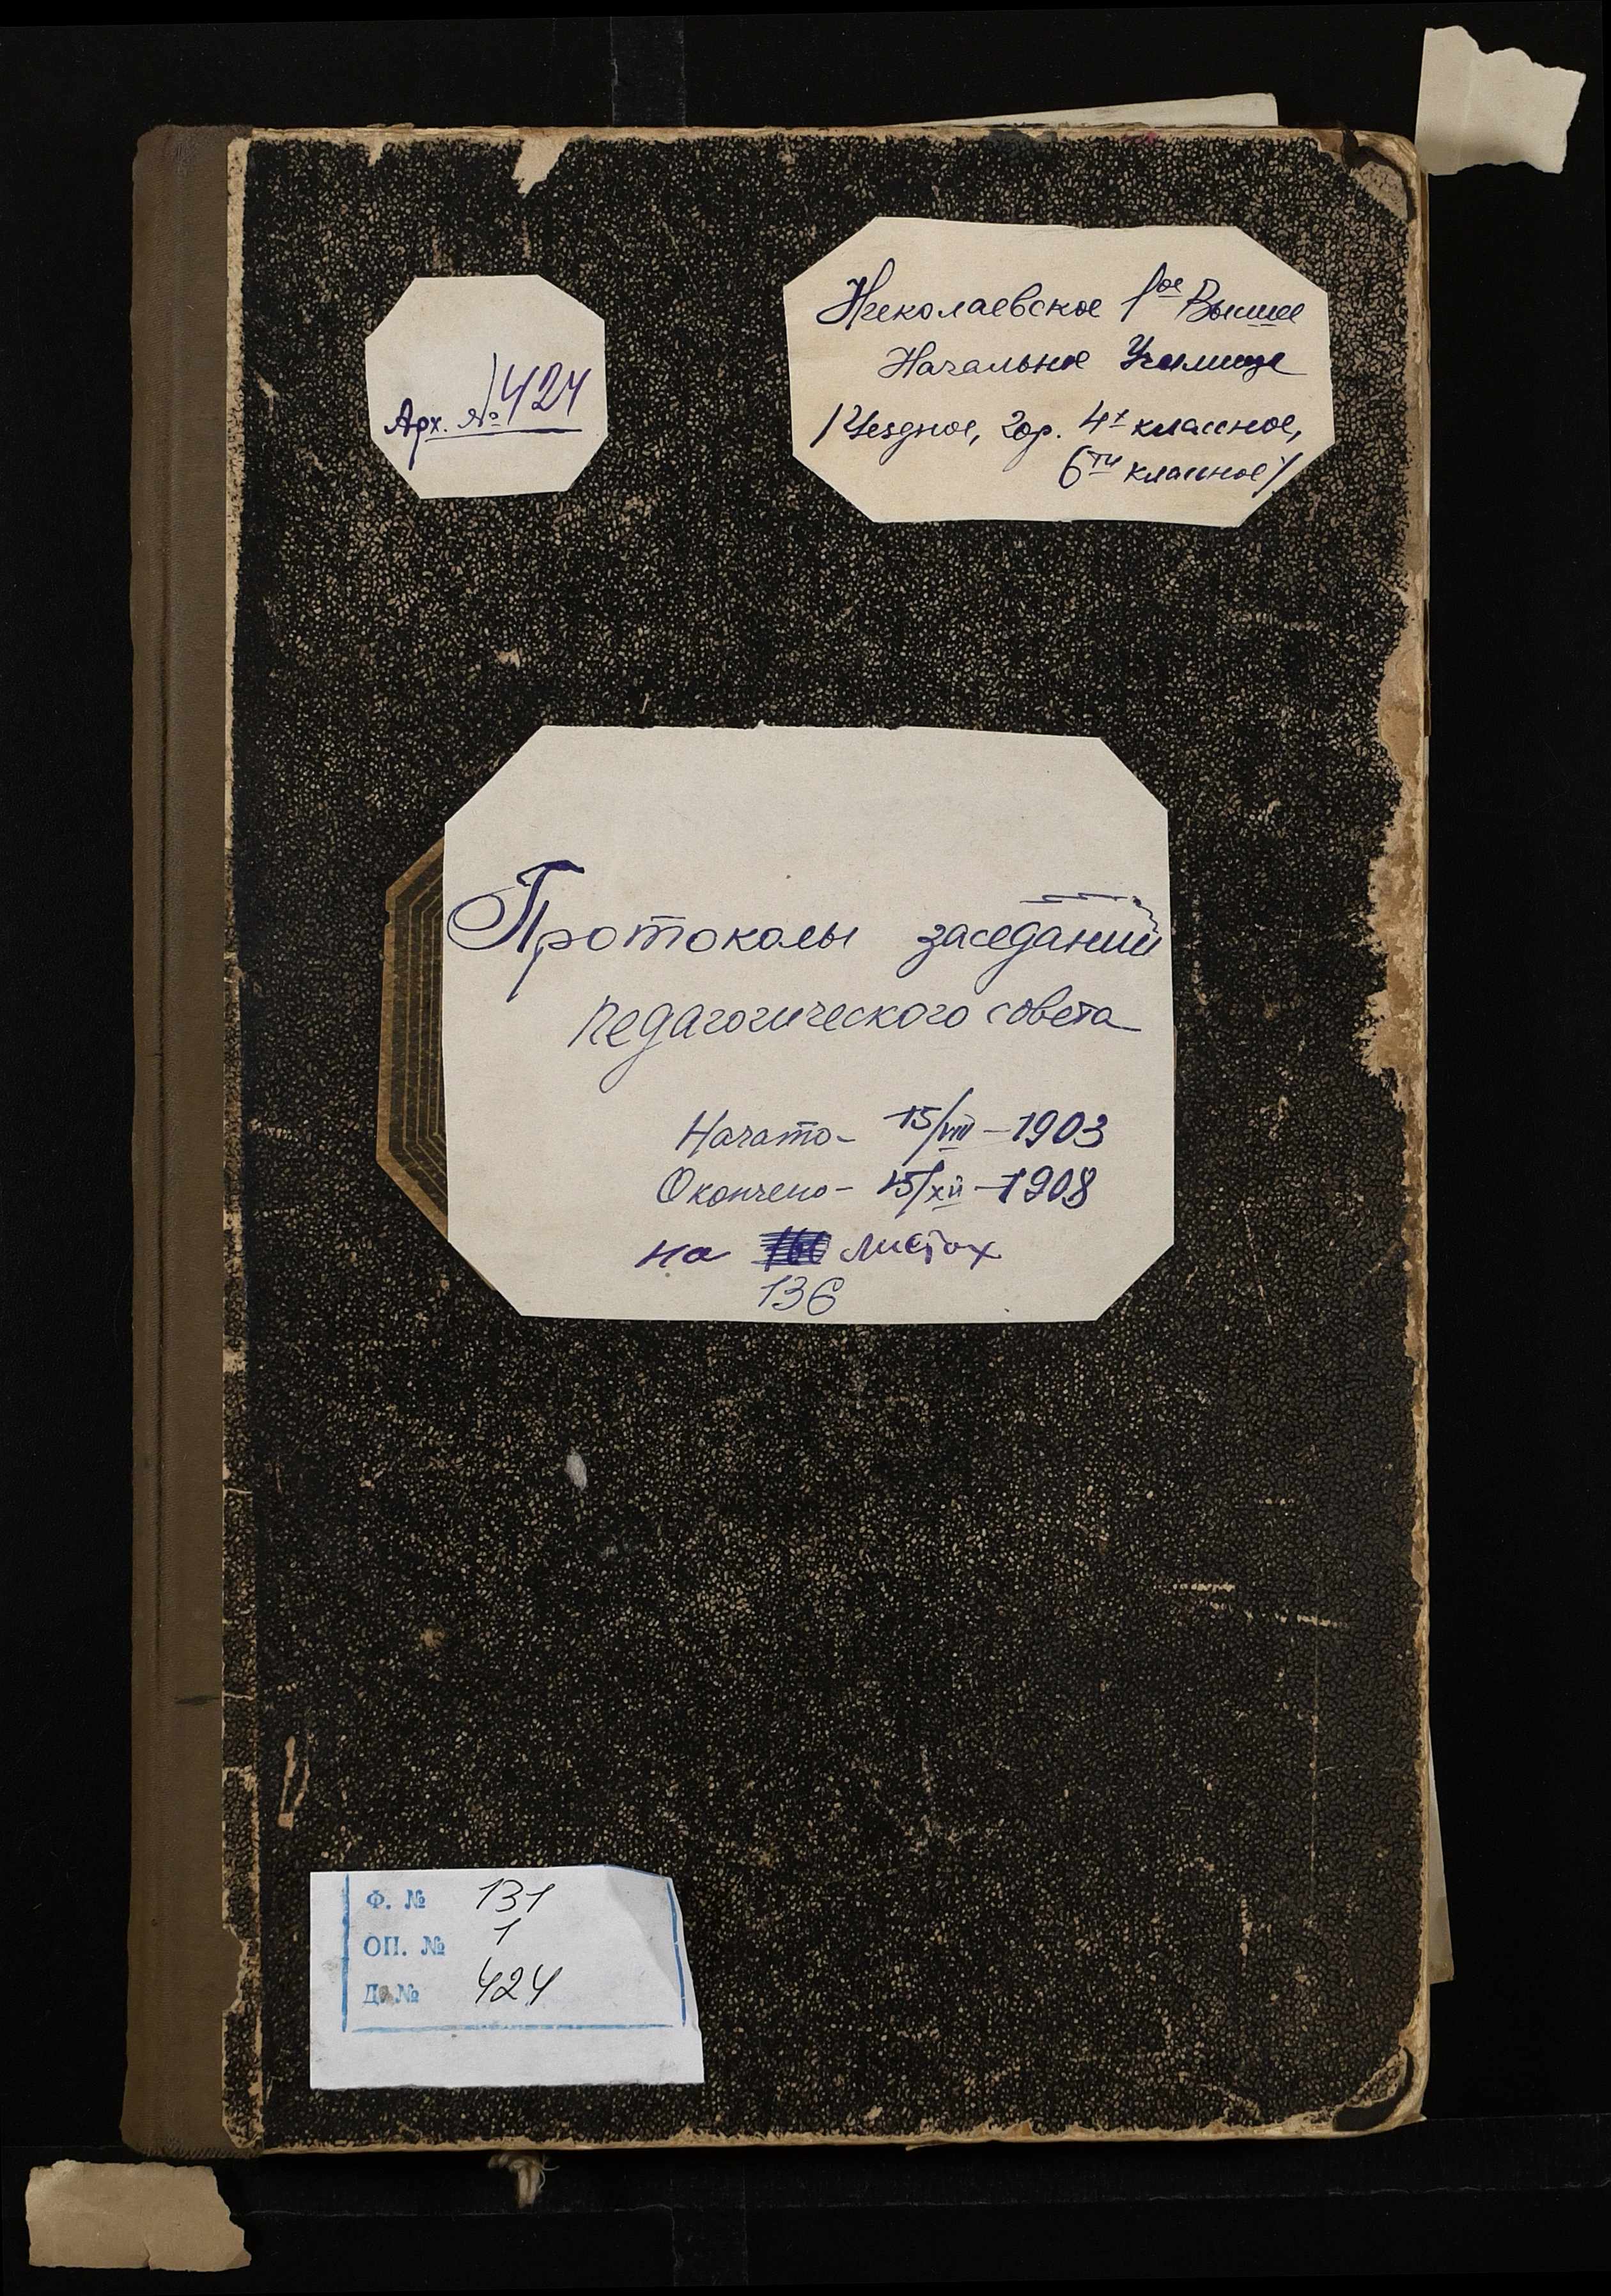 Арх. № 424
Николаевское 1ое Высшее
Начальное Училище
/Уездное, Гор. 4х классное,
6ти классное/
Протоколы заседаний
педагогического совета
Начато - 15/VIII - 1903
Окончено - 15/XII - 1908
на листах
136
Ф. № 131
ОП. № 1
Д. № 424